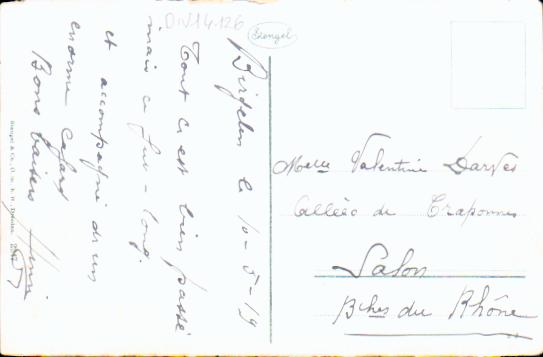 DIV14-126
Stengel
Birgelen le 10-5-19
Tout ci est bien passé
mais ce fut-long.
et accompagné d'un
enorme cafard
Bons baisers
Stengel & Co., G. m. b. H., Dresden
Melle Valentine Darvès
Allées de Craponne
Salon
Bches du Rhône